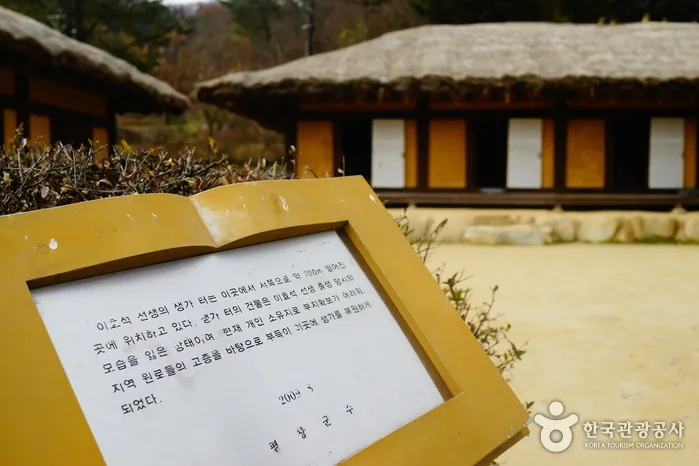 이효석 선생의 생가 터는 이곳에서 서쪽으로 약 700m 떨어진
곳에 위치하고 있다. 생가 터의 건물은 이효석 선생 출생 당시와
모습을 잃은 상태이며, 현재 개인 소유지로 부지확보가 어려워
지역 원로들의 고증을 바탕으로 부득이 이곳에 생가를 복원하게
되었다.
평 창 군 수
한국관광공사
KOREA TOURISM ORGANIZATION